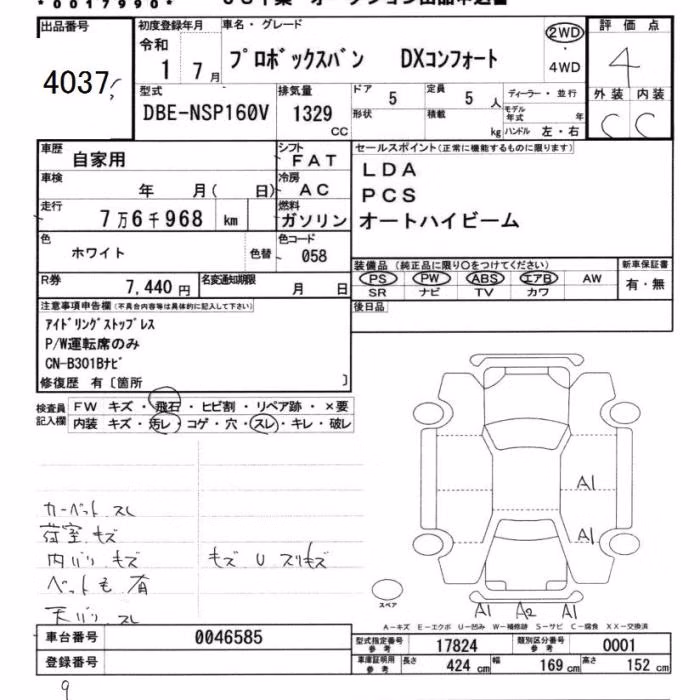 *0017990*
出品番号 初度登録年月 車名・グレード 評価点
令和 2WD
4037 1 7月 プロボックスバン DXコンフォート ・ 4
4WD
型式 排気量 ドア 定員 ディーラー・並行 外装 内装
DBE-NSP160V 1329 5 5人 モデル年式 年 C C
cc 形状 積載 kg ハンドル 左・右
車歴 自家用 シフト FAT セールスポイント(正常に機能するものに限ります)
車検 年 月( 日) 冷房 AC LDA
PCS
走行 7万6千968 km 燃料 ガソリン オートハイビーム
色 ホワイト 色替 色コード 058
装備品 (純正品に限り〇をつけてください) 新車保証書
R券 7,440円 名変通知期限 月 日 PS PW ABS エアB AW 有・無
SR ナビ TV カワ
注意事項申告欄(不具合内容等は具体的に記入して下さい) 後日品
アイドリングストップレス
P/W運転席のみ
CN-B301Bナビ
修復歴 有〔箇所 〕
検査員記入欄 FW キズ・飛石・ヒビ割・リペア跡・×要
内装 キズ・汚レ・コゲ・穴・スレ・キレ・破レ
A1
カーペット スレ
荷室 キズ A1
内バリ キズ キズ U スリキズ
ペット毛 有
天バリ スレ スペア A1 A2 A1
A-キズ E-エクボ U-凹み W-補修跡 S-サビ C-腐食 XX-交換済
車台番号 0046585 型式指定番号 参考 17824 類別区分番号 参考 0001
登録番号 車庫証明用 参考 長さ 424cm 幅 169cm 高さ 152cm
9